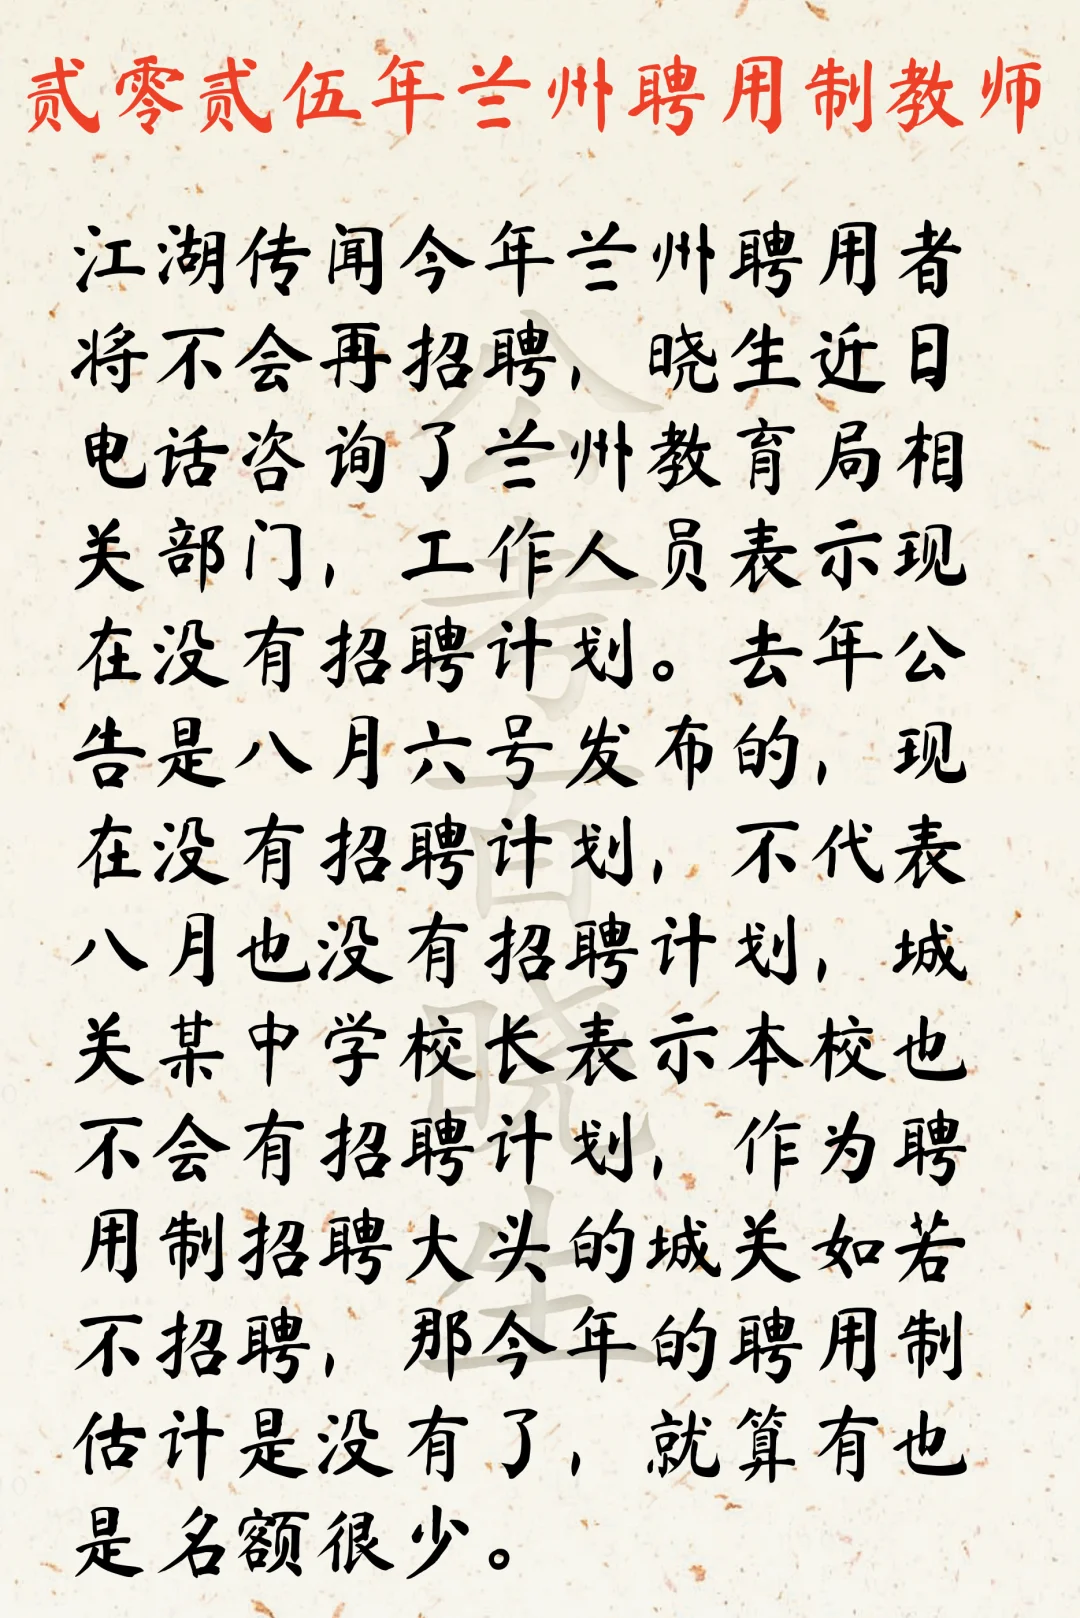 贰零贰伍年兰州聘用制教师
江湖传闻今年兰州聘用者
将不会再招聘，晓生近日
电话咨询了兰州教育局相
关部门，工作人员表示现
在没有招聘计划。去年公
告是八月六号发布的，现
在没有招聘计划，不代表
八月也没有招聘计划，城
关某中学校长表示本校也
不会有招聘计划，作为聘
用制招聘大头的城关如若
不招聘，那今年的聘用制
估计是没有了，就算有也
是名额很少。
公考百晓生